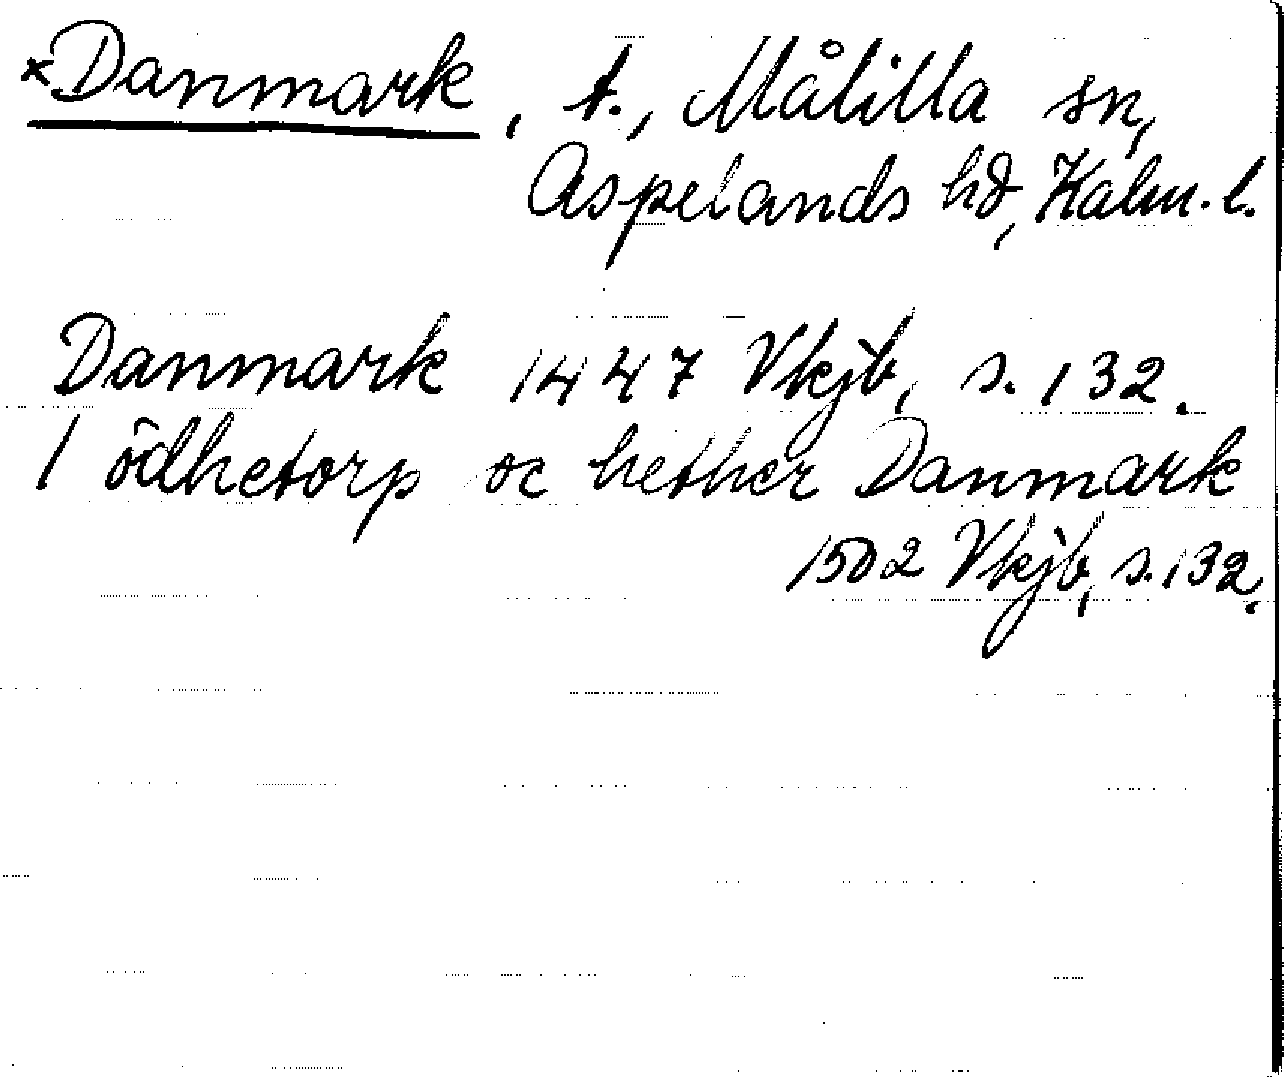 ×Danmark, t., Målilla sn,
Aspelands hd, Kalm. l.
Danmark 1447 Vkjb, s. 132.
1 ödhetorp oc hether Danmark
1502 Vkjb, s. 132.